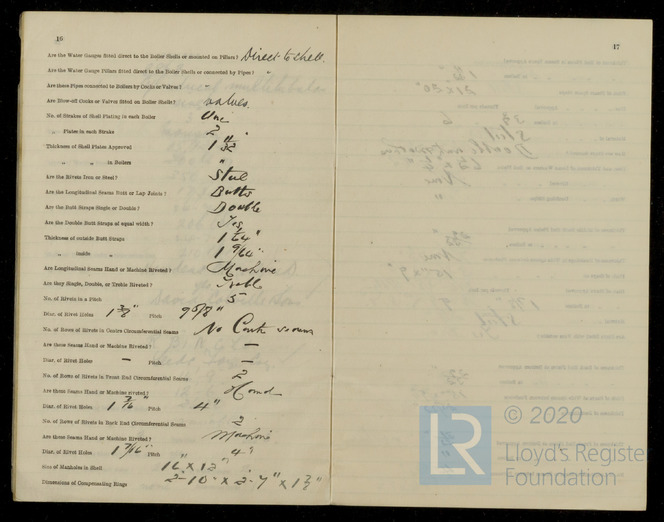 16
Are the Water Gauges fitted direct to the Boiler Shells or mounted on Pillars? Direct to shell.
Are the Water Gauge Pillars fitted direct to the Boiler Shells or connected by Pipes? "
Are these Pipes connected to Boilers by Cocks or Valves? "
Are Blow-off Cocks or Valves fitted on Boiler Shells? Valves.
No. of Strakes of Shell Plating in each Boiler One
" Plates in each Strake 2
Thickness of Shell Plates Approved
" " in Boilers "
Are the Rivets Iron or Steel? Steel
Are the Longitudinal Seams Butt or Lap Joints? Butts
Are the Butt Straps Single or Double? Double
Are the Double Butt Straps of equal width? Yes
Thickness of outside Butt Straps
" inside " 1 9/64"
Are Longitudinal Seams Hand or Machine Riveted? Machine
Are they Single, Double, or Treble Riveted? Treble
No. of Rivets in a Pitch 5
Diar. of Rivet Holes Pitch 9 5/8"
No. of Rows of Rivets in Centre Circumferential Seams No Centre seams
Are these Seams Hand or Machine Riveted? —
Diar. of Rivet Holes — Pitch —
No. of Rows of Rivets in Front End Circumferential Seams 2
Are these Seams Hand or Machine riveted? Hand
Diar. of Rivet Holes 1 7/16" Pitch 4"
No. of Rows of Rivets in Back End Circumferential Seams 2
Are these Seams Hand or Machine Riveted? Machine
Diar. of Rivet Holes 1 7/16" Pitch 4"
Size of Manholes in Shell 16" x 12"
Dimensions of Compensating Rings 2-10 x 2-7" x
17
LR
© 2020
Lloyd's Register
Foundation